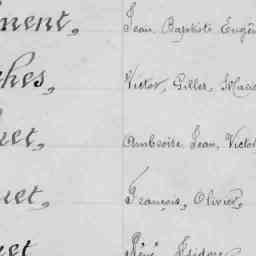 ment, Jean Baptiste Eugèn
ches, Victor,
uet, Ambroise Jean, Victor
uet, François, Olivier,
uet René Isidore